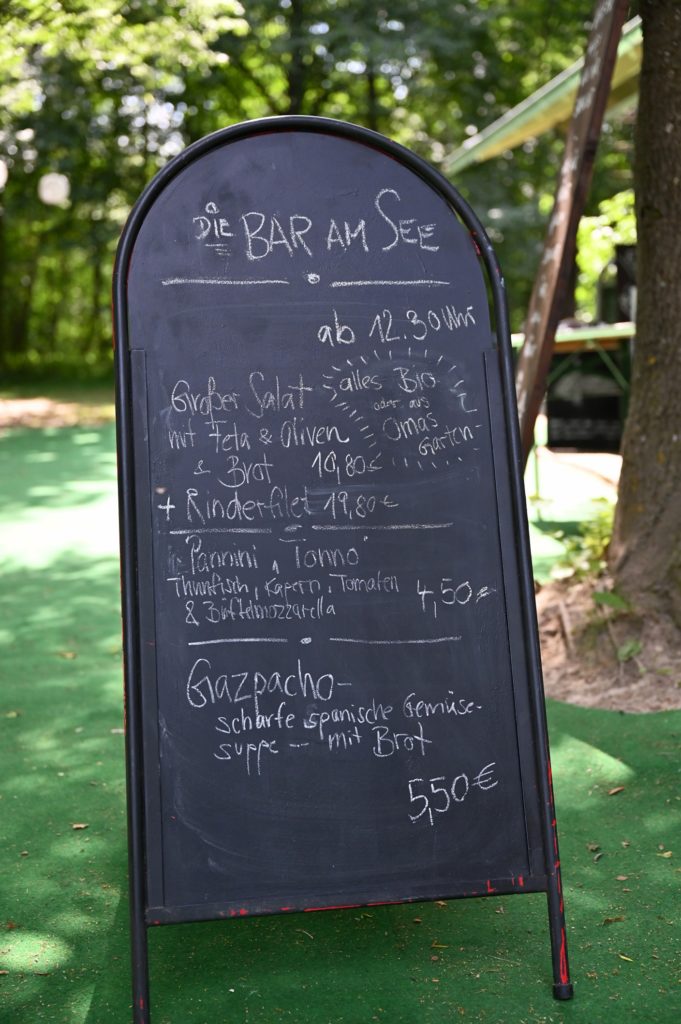 DIE BAR AM SEE
ab 12.30 Uhr
Großer Salat
mit Feta & Oliven
& Brot 10,80€
+ Rinderfilet 19,80€
alles Bio
oder aus
Omas
Garten-
Pannini, Tonno
Thunfisch, Kapern, Tomaten
& Büffelmozzarella 4,50
Gazpacho-
scharfe spanische Gemüse-
suppe - mit Brot
5,50€